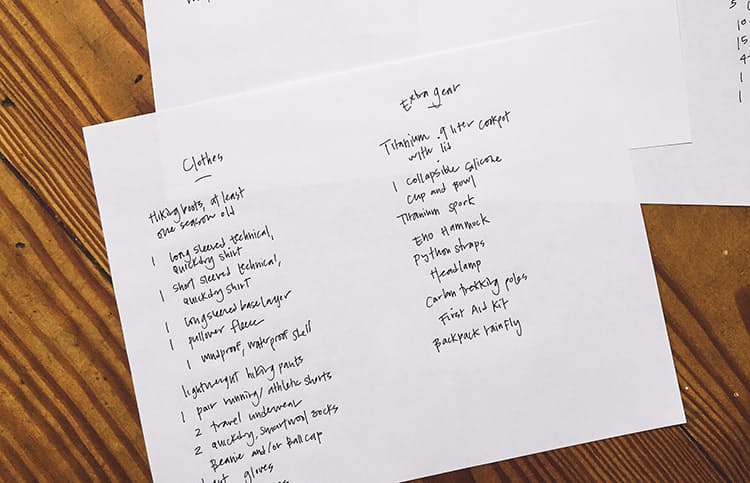 Clothes
Hiking boots, at least
one season old
1 long sleeved technical,
quickdry shirt
1 short sleeved technical,
quickdry shirt
1 longsleeved baselayer
1 pullover fleece
1 windproof, waterproof shell
lightweight hiking pants
1 pair running/athletic shorts
2 travel underwear
2 quickdry, smartwool socks
Beanie and/or Ballcap
gloves
Extra gear
Titanium .9 liter cookpot
with lid
1 collapsible silicone
cup and bowl
Titanium spork
Eno Hammock
Python straps
Headlamp
Carbon trekking poles
First Aid Kit
Backpack rainfly
5
10
15
4
1
1